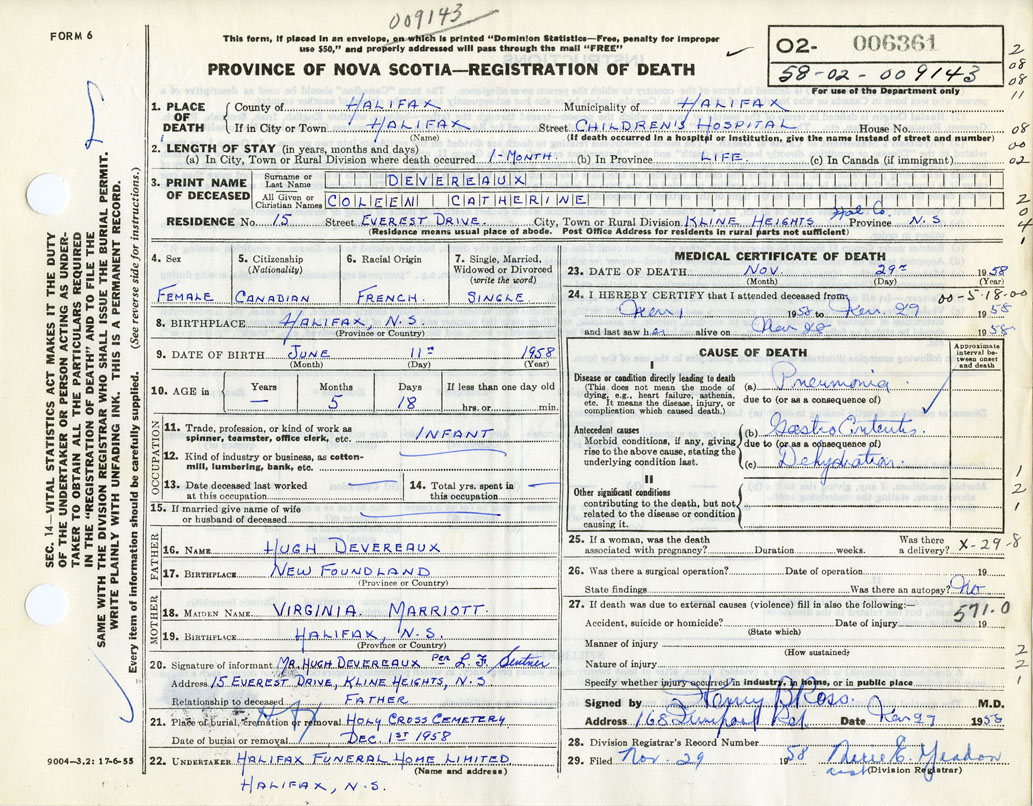 009143
FORM 6
This form, if placed in an envelope, on which is printed "Dominion Statistics—Free, penalty for improper
use $50," and properly addressed will pass through the mail "FREE"
PROVINCE OF NOVA SCOTIA—REGISTRATION OF DEATH
02- 006361
58-02-009143
For use of the Department only
2
08
08
11
1. PLACE OF DEATH
County of HALIFAX Municipality of HALIFAX
If in City or Town HALIFAX Street CHILDREN'S HOSPITAL House No.
(Name) (If death occurred in a hospital or institution, give the name instead of street and number)
08
00
02
2. LENGTH OF STAY (in years, months and days)
(a) In City, Town or Rural Division where death occurred 1-MONTH. (b) In Province LIFE. (c) In Canada (if immigrant)
3. PRINT NAME OF DECEASED
Surname or Last Name DEVEREAUX
All Given or Christian Names COLEEN CATHERINE
Hal. Co.
RESIDENCE No. 15 Street EVEREST DRIVE. City, Town or Rural Division KLINE HEIGHTS Province N.S
(Residence means usual place of abode. Post Office Address for residents in rural parts not sufficient)
4. Sex
FEMALE
5. Citizenship
(Nationality)
CANADIAN
6. Racial Origin
FRENCH.
7. Single, Married,
Widowed or Divorced
(write the word)
SINGLE
8. BIRTHPLACE HALIFAX, N.S.
(Province or Country)
9. DATE OF BIRTH JUNE 11th 1958
(Month) (Day) (Year)
10. AGE in Years — Months 5 Days 18 If less than one day old
hrs. or min.
OCCUPATION
11. Trade, profession, or kind of work as
spinner, teamster, office clerk, etc. INFANT
12. Kind of industry or business, as cotton-
mill, lumbering, bank, etc.
13. Date deceased last worked
at this occupation
14. Total yrs. spent in
this occupation
15. If married give name of wife
or husband of deceased
FATHER
16. NAME HUGH DEVEREAUX
17. BIRTHPLACE NEW FOUNDLAND
(Province or Country)
MOTHER
18. MAIDEN NAME. VIRGINIA MARRIOTT.
19. BIRTHPLACE HALIFAX, N.S.
(Province or Country)
20. Signature of informant MR. HUGH DEVEREAUX PER L. F.
Address 15 EVEREST DRIVE, KLINE HEIGHTS, N.S
Relationship to deceased FATHER
21. Place of burial, cremation or removal HOLY CROSS CEMETERY
Date of burial or removal DEC. 1st 1958
22. UNDERTAKER HALIFAX FUNERAL HOME LIMITED
(Name and address)
HALIFAX, N.S.
MEDICAL CERTIFICATE OF DEATH
23. DATE OF DEATH NOV. 29th 1958
(Month) (Day) (Year)
00-5-18-00
24. I HEREBY CERTIFY that I attended deceased from
Nov 1 1958 to Nov. 29 1958
and last saw her alive on Nov 28 1958
CAUSE OF DEATH
Approximate
interval be-
tween onset
and death
I
Disease or condition directly leading to death
(This does not mean the mode of
dying, e.g., heart failure, asthenia,
etc. It means the disease, injury, or
complication which caused death.)
(a) Pneumonia
due to (or as a consequence of)
Antecedent causes
Morbid conditions, if any, giving
rise to the above cause, stating the
underlying condition last.
(b) Gastro Enteritis.
due to (or as a consequence of)
(c) Dehydration.
II
Other significant conditions
contributing to the death, but not
related to the disease or condition
causing it.
1
2
1
25. If a woman, was the death
associated with pregnancy? Duration weeks. Was there
a delivery? X-29-8
26. Was there a surgical operation? Date of operation 19
State findings Was there an autopsy? No
27. If death was due to external causes (violence) fill in also the following:—
571.0
Accident, suicide or homicide? Date of injury 19
(State which)
Manner of injury
(How sustained)
Nature of injury
Specify whether injury occurred in industry, in home, or in public place
2
2
1
Signed by Henry B Ross. M.D.
Address 168 Liverpool Rd. Date Nov 27 1958
28. Division Registrar's Record Number
29. Filed Nov. 29 1958 Marie E. Meadon
(Division Registrar)
SEC. 14—VITAL STATISTICS ACT MAKES IT THE DUTY
OF THE UNDERTAKER OR PERSON ACTING AS UNDER-
TAKER TO OBTAIN ALL THE PARTICULARS REQUIRED
IN THE "REGISTRATION OF DEATH" AND TO FILE THE
SAME WITH THE DIVISION REGISTRAR WHO SHALL ISSUE THE BURIAL PERMIT.
WRITE PLAINLY WITH UNFADING INK. THIS IS A PERMANENT RECORD.
Every item of information should be carefully supplied. (See reverse side for instructions.)
9004—3.2: 17-6-55